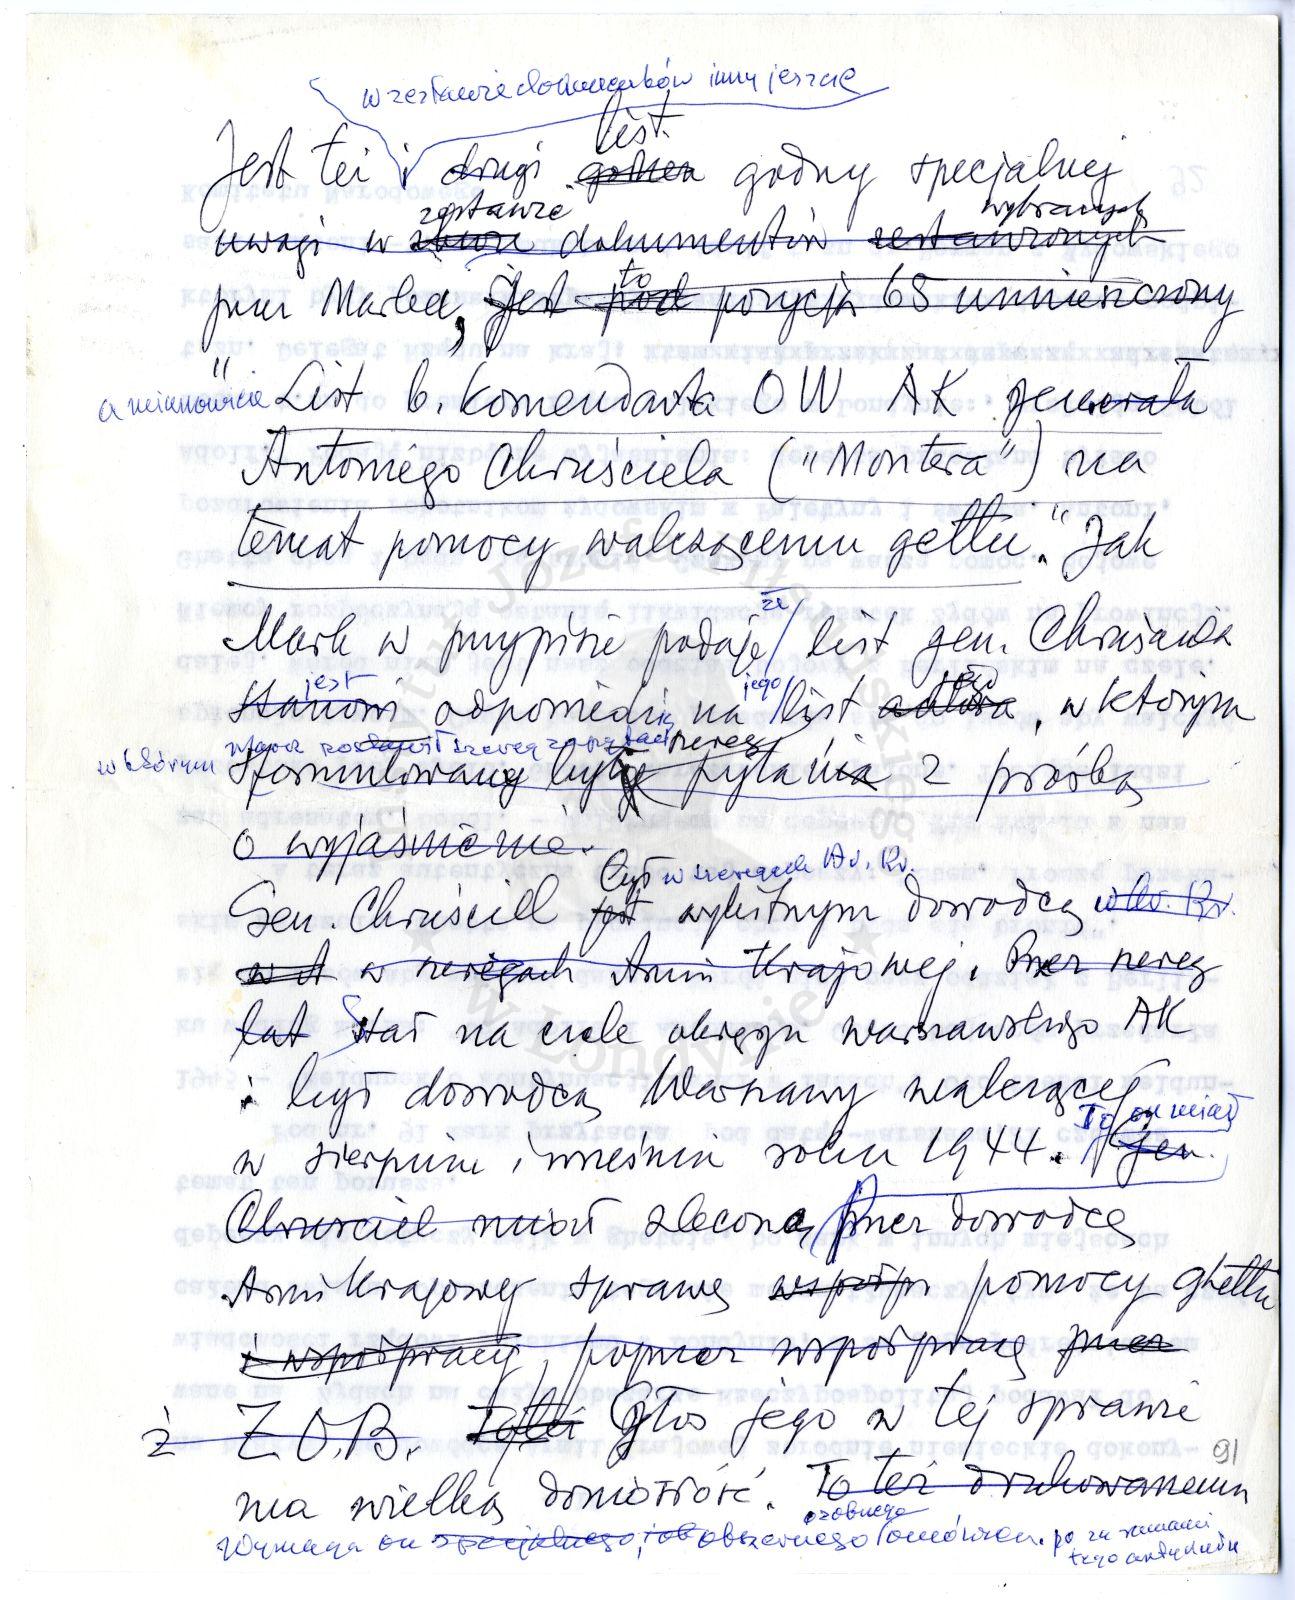 w zestawie dokumentów inny jeszcze
list
Jest też i drugi godny specjalnej
zestawie wybranych
uwagi w dokumentów zestawionych
to
przez Marka, jest pod pozycją 65 umieszczony
a mianowicie "List b. Komendanta OW AK generała
Antoniego Chruściela ("Montera") na
temat pomocy walczącemu gettu." Jak
że
Mark w przypisie podaje list gen. Chruściela
jest jego
stanowi odpowiedź na list, w którym
w którym Mark szereg
sformułowany był pytania z prośbą
o wyjaśnienie.
był w szeregach
Gen. Chruściel jest wybitnym dowódcą
w A w szeregach Armii Krajowej. Przez szereg
lat Stał na czele okręgu warszawskiego AK
i był dowódcą Warszawy walczącej
To on miał
w sierpniu i wrześniu roku 1944. Gen.
Chruściel miał zleconą przez dowódcę
Armii Krajowej sprawę pomocy ghettu
i współpracy, poprzez współpracę przez
z Z.O.B. Głos jego w tej sprawie
91
ma wielką doniosłość. To też drukowanemu
osobnego
Wymaga on specjalnego, obszernego omówienia. poza ramami
tego artykułu
Instytut Józefa Piłsudskiego
w Londynie